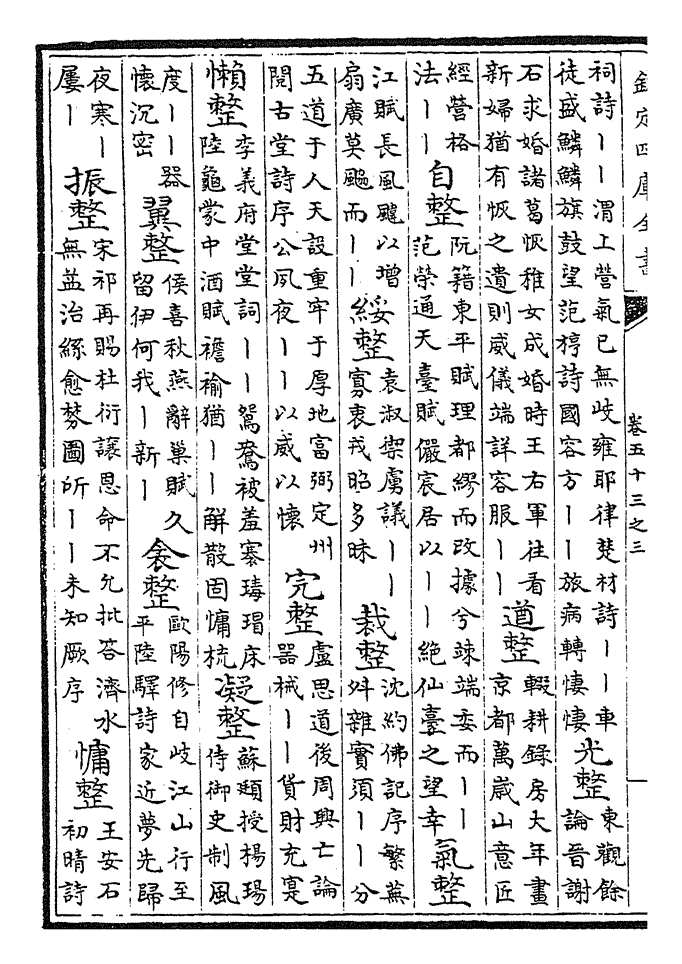 欽定四庫全書
卷五十三之三
祠詩丨丨渭上營氣已無岐雍耶律楚材詩丨丨車
徒盛鱗鱗旗鼓望范梈詩國容方丨丨旅病轉悽悽
光整
東觀餘
論晉謝
石求婚諸葛恢稚女成婚時王右軍往看
新婦猶有恢之遺則威儀端詳容服丨丨
遒整
輟耕錄房大年畫
京都萬歲山意匠
經營格
法丨丨
自整
阮籍東平賦理都繆而改據兮竦端委而丨丨
范榮通天臺賦儼宸居以丨丨絶仙臺之望幸
氣整
江賦長風颹以增
扇廣莫飈而丨丨
綏整
袁淑禦虜議丨丨
寡衷戎昭多昧
裁整
沈約佛記序繁蕪
舛雜實須丨丨分
五道于人天設重牢于厚地富弼定州
閱古堂詩序公夙夜丨丨以威以懷
完整
盧思道後周興亡論
器械丨丨貨財充寔
懶整
李義府堂堂詞丨丨鴛鴦被羞褰瑇瑁床
陸龜蒙中酒賦襜褕猶丨丨解散固慵梳
凝整
蘇頲授楊瑒
侍御史制風
度丨丨器
懷沉密
翼整
侯喜秋燕辭巢賦久
留伊何我丨新丨
衾整
歐陽修自岐江山行至
平陸驛詩家近夢先歸
夜寒丨
屢丨
振整
宋祁再賜杜衍讓恩命不允批答濟水
無益治絲愈棼圖所丨丨未知厥序
慵整
王安石
初晴詩